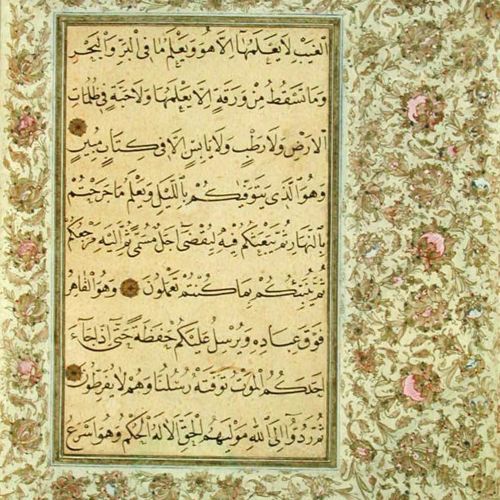 الغَيْبِ لَا يَعْلَمُهَا إِلَّا هُوَ وَيَعْلَمُ مَا فِي الْبَرِّ وَالْبَحْرِ
وَمَا تَسْقُطُ مِنْ وَرَقَةٍ إِلَّا يَعْلَمُهَا وَلَا حَبَّةٍ فِي ظُلُمَاتِ
الْأَرْضِ وَلَا رَطْبٍ وَلَا يَابِسٍ إِلَّا فِي كِتَابٍ مُبِينٍ
وَهُوَ الَّذِي يَتَوَفَّيكُمْ بِاللَّيْلِ وَيَعْلَمُ مَا جَرَحْتُمْ
بِالنَّهَارِ ثُمَّ يَبْعَثُكُمْ فِيهِ لِيُقْضَى أَجَلٌ مُسَمًّى ثُمَّ إِلَيْهِ مَرْجِعُكُمْ
ثُمَّ يُنَبِّئُكُمْ بِمَا كُنْتُمْ تَعْمَلُونَ وَهُوَ الْقَاهِرُ
فَوْقَ عِبَادِهِ وَيُرْسِلُ عَلَيْكُمْ حَفَظَةً حَتَّى إِذَا جَاءَ
أَحَدَكُمُ الْمَوْتُ تَوَفَّتْهُ رُسُلُنَا وَهُمْ لَا يُفَرِّطُونَ
ثُمَّ رُدُّوا إِلَى اللَّهِ مَوْلَيهُمُ الْحَقِّ أَلَا لَهُ الْحُكْمُ وَهُوَ أَسْرَعُ